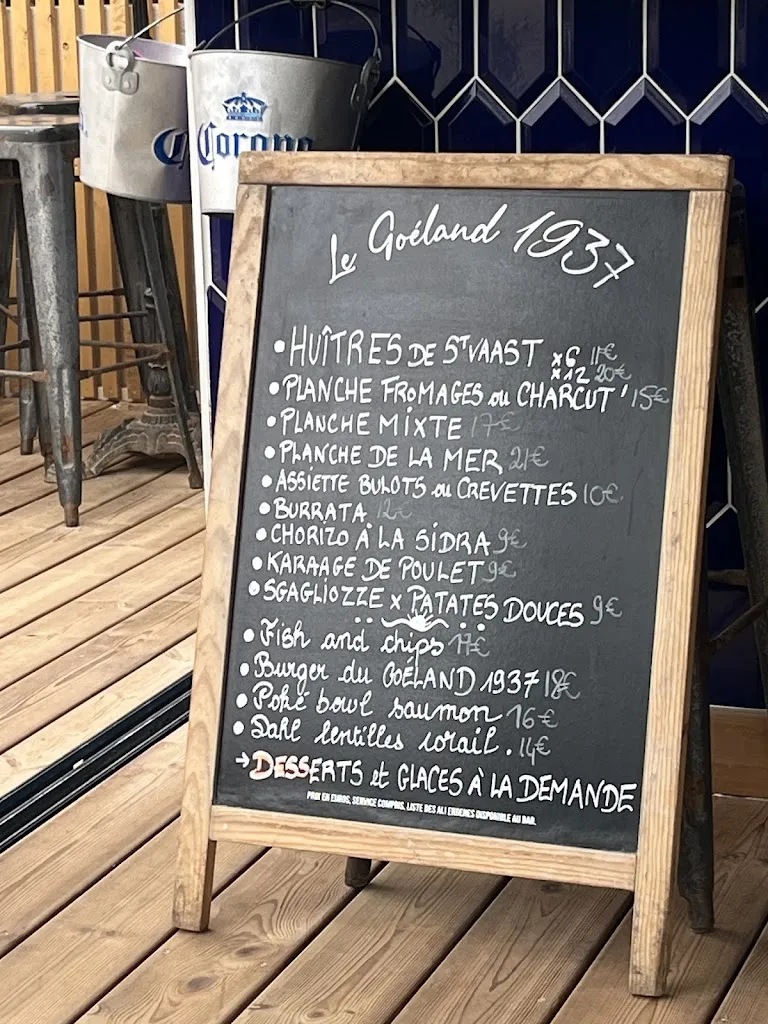 Corona
Le Goéland 1937
• HUÎTRES DE ST VAAST x6 11€
x12 20€
• PLANCHE FROMAGES ou CHARCUT' 15€
• PLANCHE MIXTE 17€
• PLANCHE DE LA MER 21€
• ASSIETTE BULOTS ou CREVETTES 10€
• BURRATA 12€
• CHORIZO À LA SIDRA 9€
• KARAAGE DE POULET 9€
• SGAGLIOZZE x PATATES DOUCES 9€
• Fish and chips 17€
• Burger du GOÉLAND 1937 18€
• Poké bowl saumon 16€
• Dahl lentilles corail. 14€
→ DESSERTS et GLACES À LA DEMANDE
PRIX EN EUROS, SERVICE COMPRIS. LISTE DES ALLERGÈNES DISPONIBLE AU BAR.